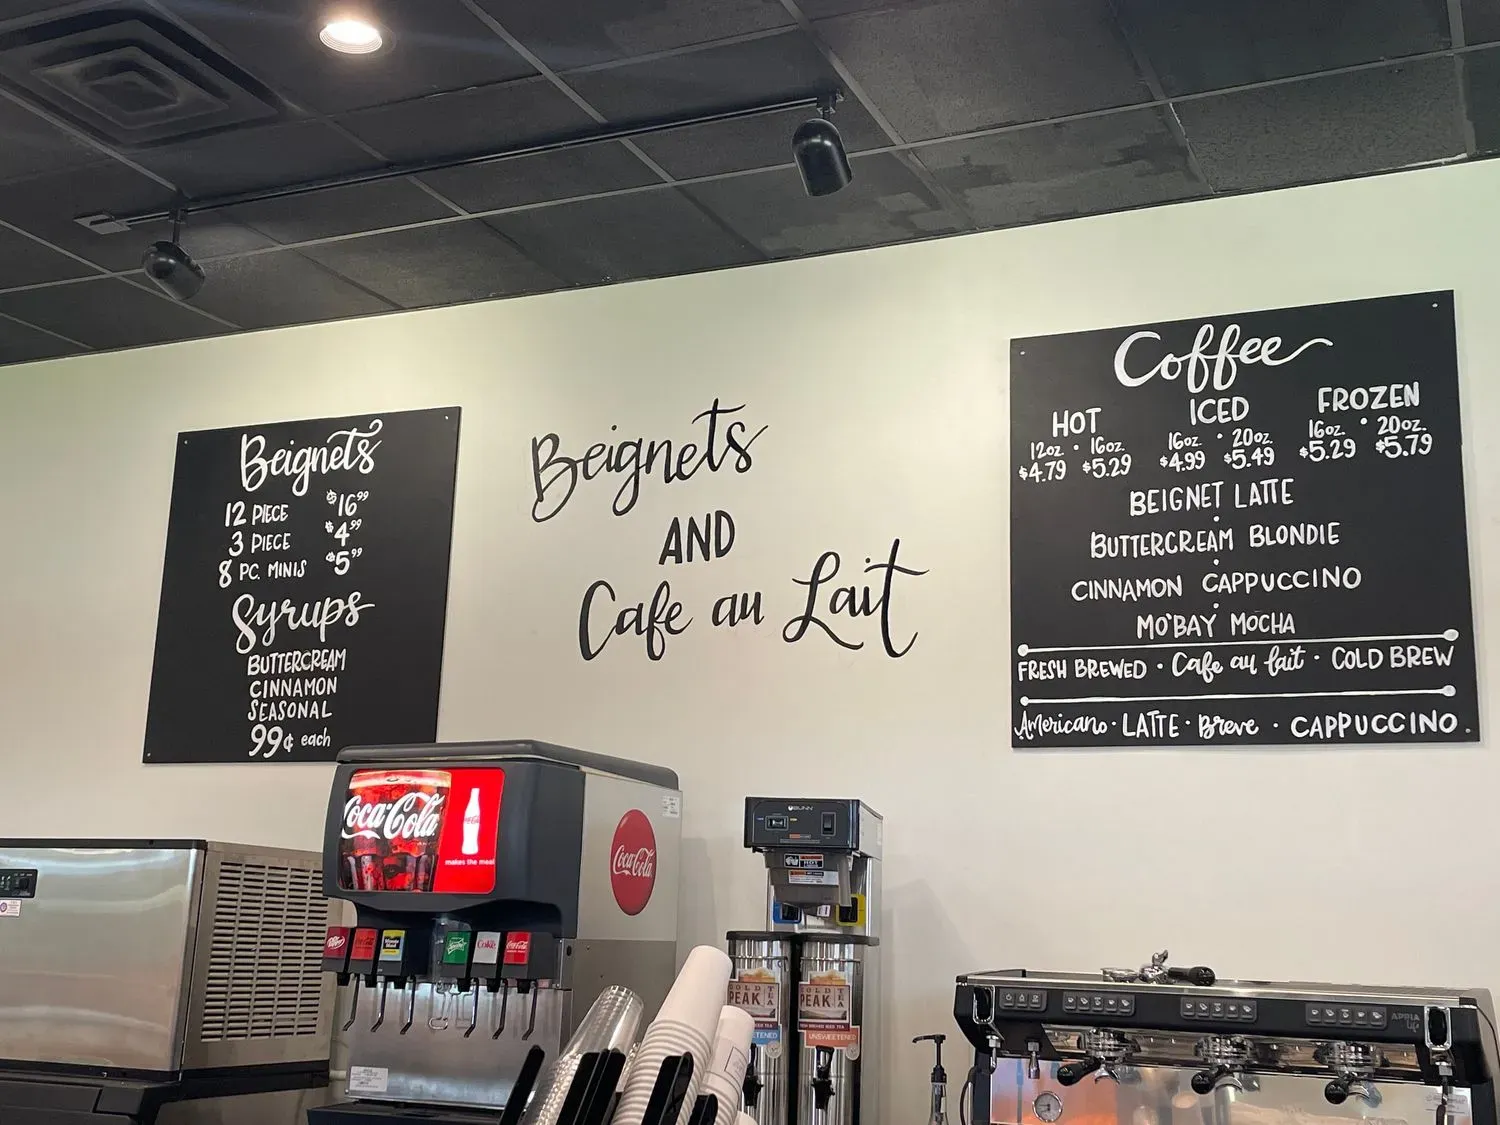 Beignets
12 PIECE $16.99
3 PIECE $4.99
8 PC. MINIS $5.99
Syrups
BUTTERCREAM
CINNAMON
SEASONAL
99¢ each
Beignets
AND
Cafe au Lait
Coffee
HOT ICED FROZEN
12oz. • 16oz. 16oz. • 20oz. 16oz. • 20oz.
$4.79 $5.29 $4.99 $5.49 $5.29 $5.79
BEIGNET LATTE
•
BUTTERCREAM BLONDIE
•
CINNAMON CAPPUCCINO
•
MO'BAY MOCHA
FRESH BREWED • Cafe au lait • COLD BREW
Americano • LATTE • Breve • CAPPUCCINO
Coca-Cola
makes the meal
Coca-Cola
BUNN
GOLD PEAK TEA
GOLD PEAK TEA
UNSWEETENED
APPIA life